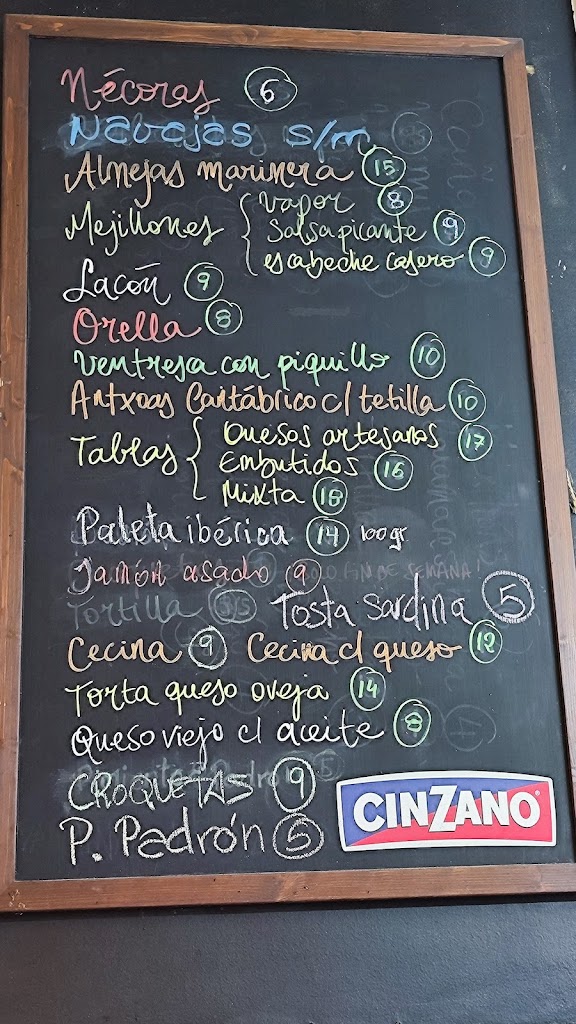 Nécoras 6
Navajas s/m
Almejas marinera 15
Mejillones { vapor 8
salsa picante 9
escabeche casero 9
Lacón 9
Orella 8
Ventresca con piquillo 10
Antxoas Cantábrico c/ tetilla 10
Tablas { Quesos artesanos 17
Embutidos 16
Mixta 18
Paleta ibérica 14 100gr
Jamón asado 9 SOLO FIN DE SEMANA
Tortilla 3,5 Tosta sardina 5
Cecina 9 Cecina c/ queso 12
Torta queso oveja 14
Queso viejo c/ aceite 8
CROQUETAS 9
P. Padrón 5
CINZANO